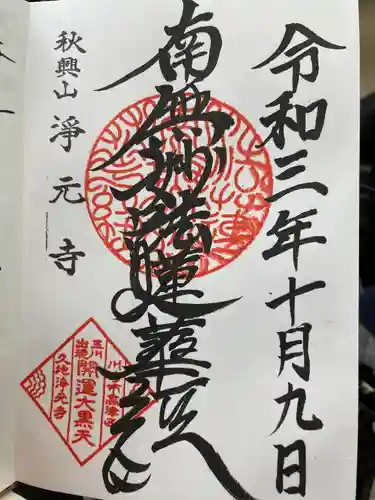 令和三年十月九日
南無妙法蓮華経
秋興山 淨元寺
玉川
出現
開運大黒天
久地淨元寺